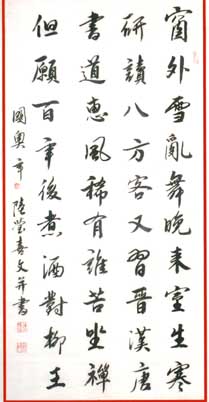 窗外雪亂舞晚來室生寒
研讀八方客又習晉漢唐
書道惠風稀有誰苦坐禪
但願百年後煮酒對柳王
國奧年 陸瑩喜文并書